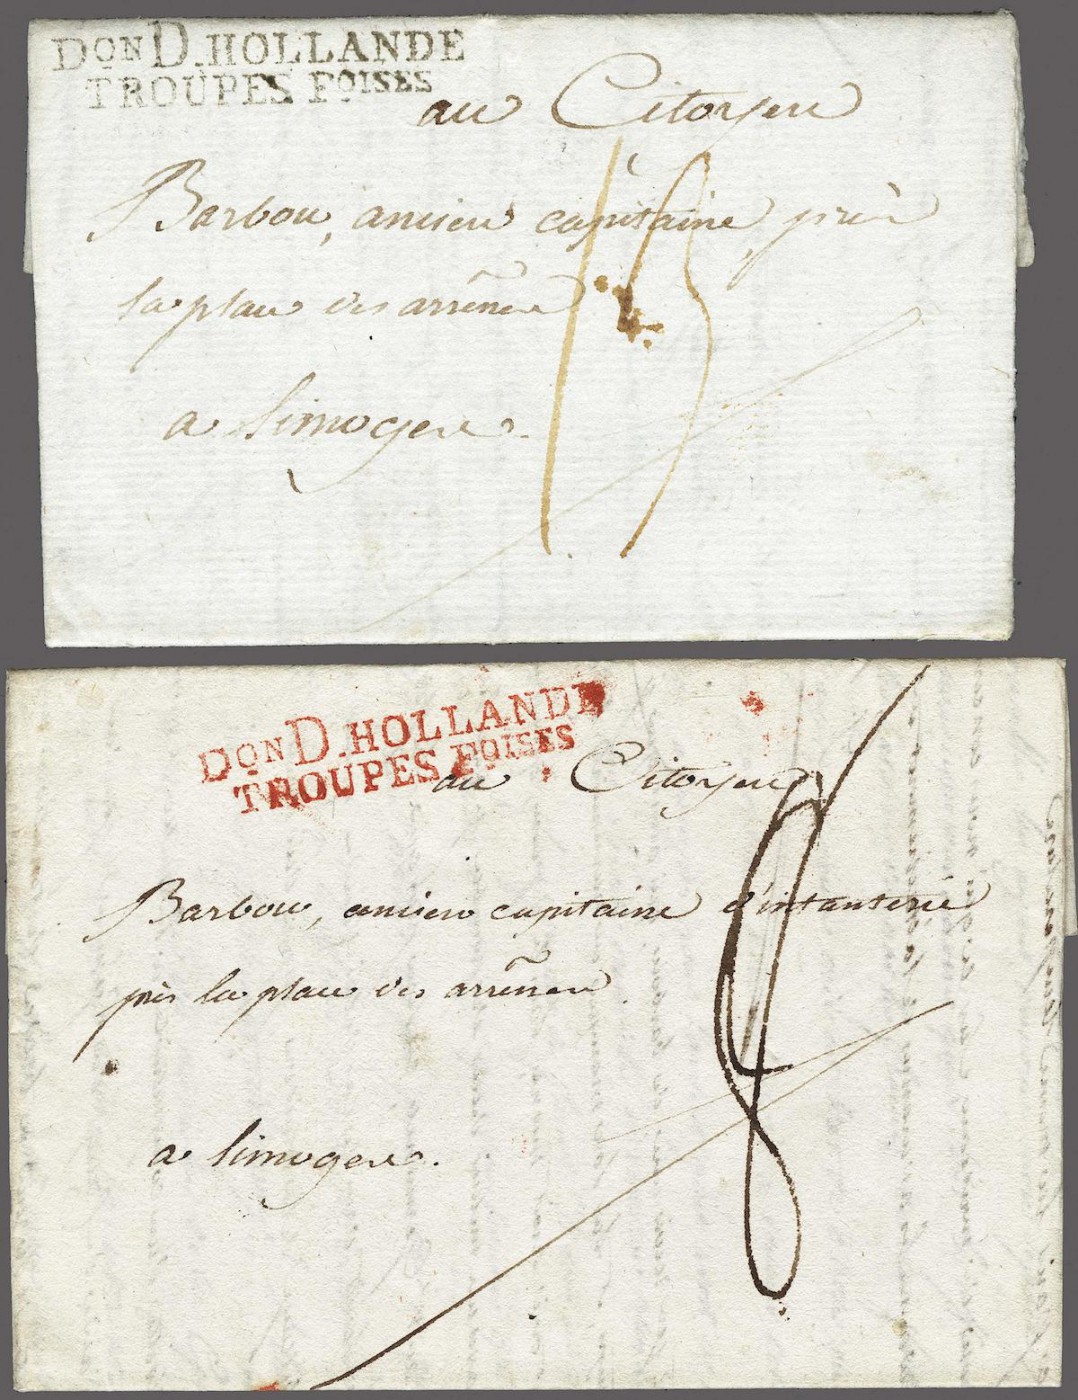 DON D. HOLLANDE
TROUPES FOISES
au Citoyen
Barbou, ancien capitaine, près
la place des arrênes
a Limoges.
13
DON D. HOLLANDE
TROUPES FOISES
au Citoyen
Barbou, ancien capitaine d'infanterie
près la place des arrênes
a Limoges.
8